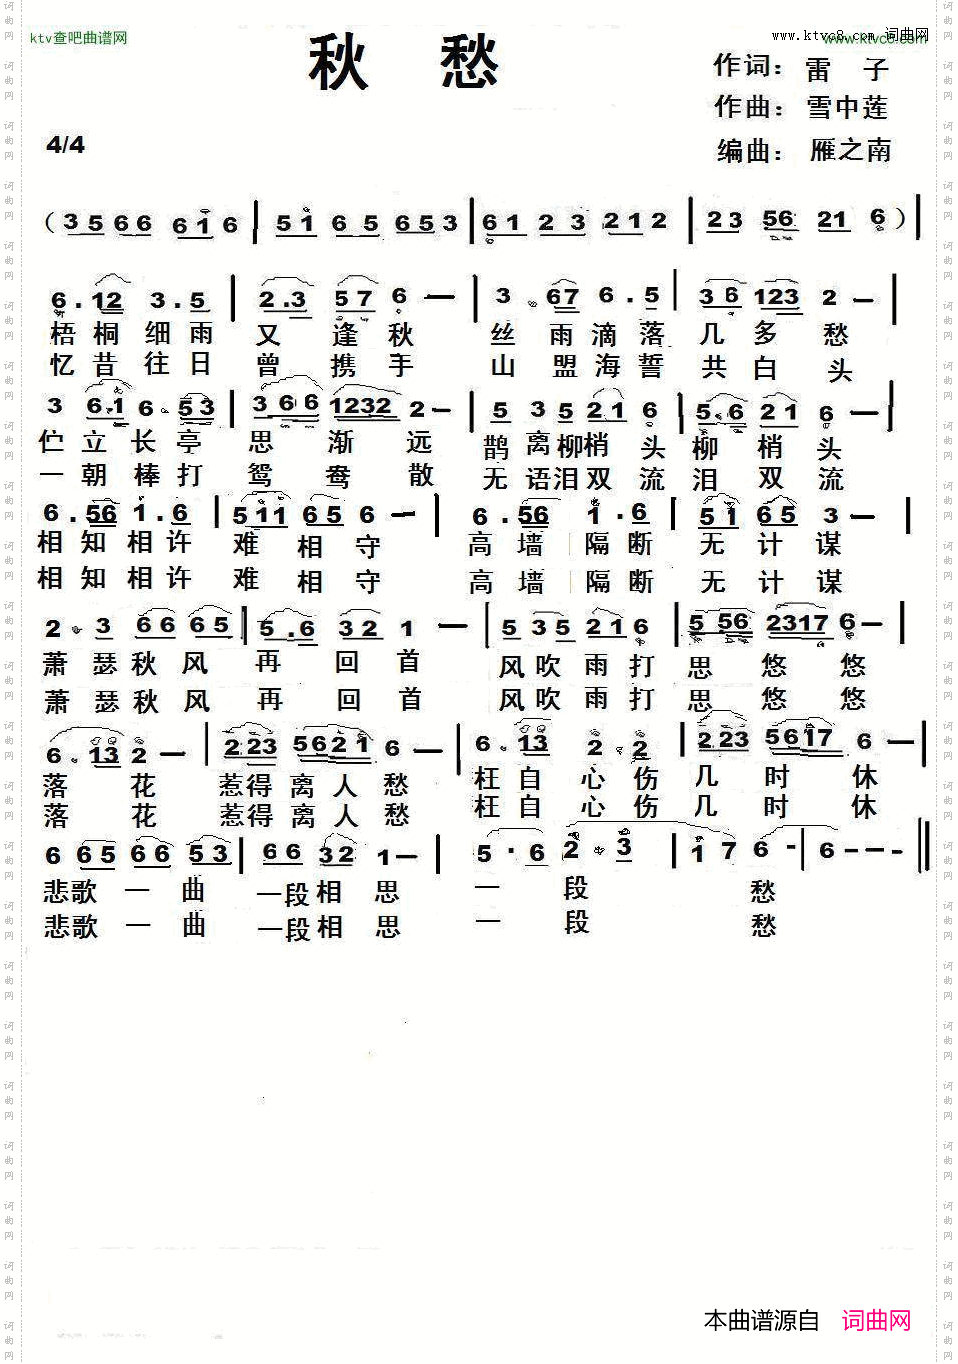 ktv查吧曲谱网
www.ktvc8.com 词曲网
秋 愁
作词：雷 子
作曲：雪中莲
编曲：雁之南
4/4
（3 5 6 6 6 1 6 | 5 1 6 5 6 5 3 | 6 1 2 3 2 1 2 | 2 3 56 21 6 ）|
6 . 12 3 . 5 | 2 . 3 5 7 6 — | 3 . 67 6 . 5 | 3 6 123 2 — |
梧桐细雨又逢秋 丝雨滴落几多愁
忆昔往日曾携手 山盟海誓共白头
3 6 . 1 6 . 53 | 3 6 6 1232 2 — | 5 3 5 2 1 6 | 5 . 6 2 1 6 — |
伫立长亭思渐远 鹊离柳梢头柳梢头
一朝棒打鸳鸯散 无语泪双流泪双流
6 . 56 1 . 6 | 5 1 1 6 5 6 — | 6 . 56 1 . 6 | 5 1 6 5 3 — |
相知相许难相守 高墙隔断无计谋
相知相许难相守 高墙隔断无计谋
2 . 3 6 6 6 5 | 5 . 6 3 2 1 — | 5 3 5 2 1 6 | 5 56 2317 6 — |
萧瑟秋风再回首 风吹雨打思悠悠
萧瑟秋风再回首 风吹雨打思悠悠
6 . 13 2 — | 2 23 5 6 2 1 6 — | 6 . 13 2 . 2 | 2 23 5617 6 — |
落花惹得离人愁 枉自心伤几时休
落花惹得离人愁 枉自心伤几时休
6 6 5 6 6 5 3 | 6 6 3 2 1 — | 5 . 6 2 . 3 | 1 7 6 - | 6 - - - ‖
悲歌一曲一段相思 一段愁
悲歌一曲一段相思 一段愁
本曲谱源自 词曲网